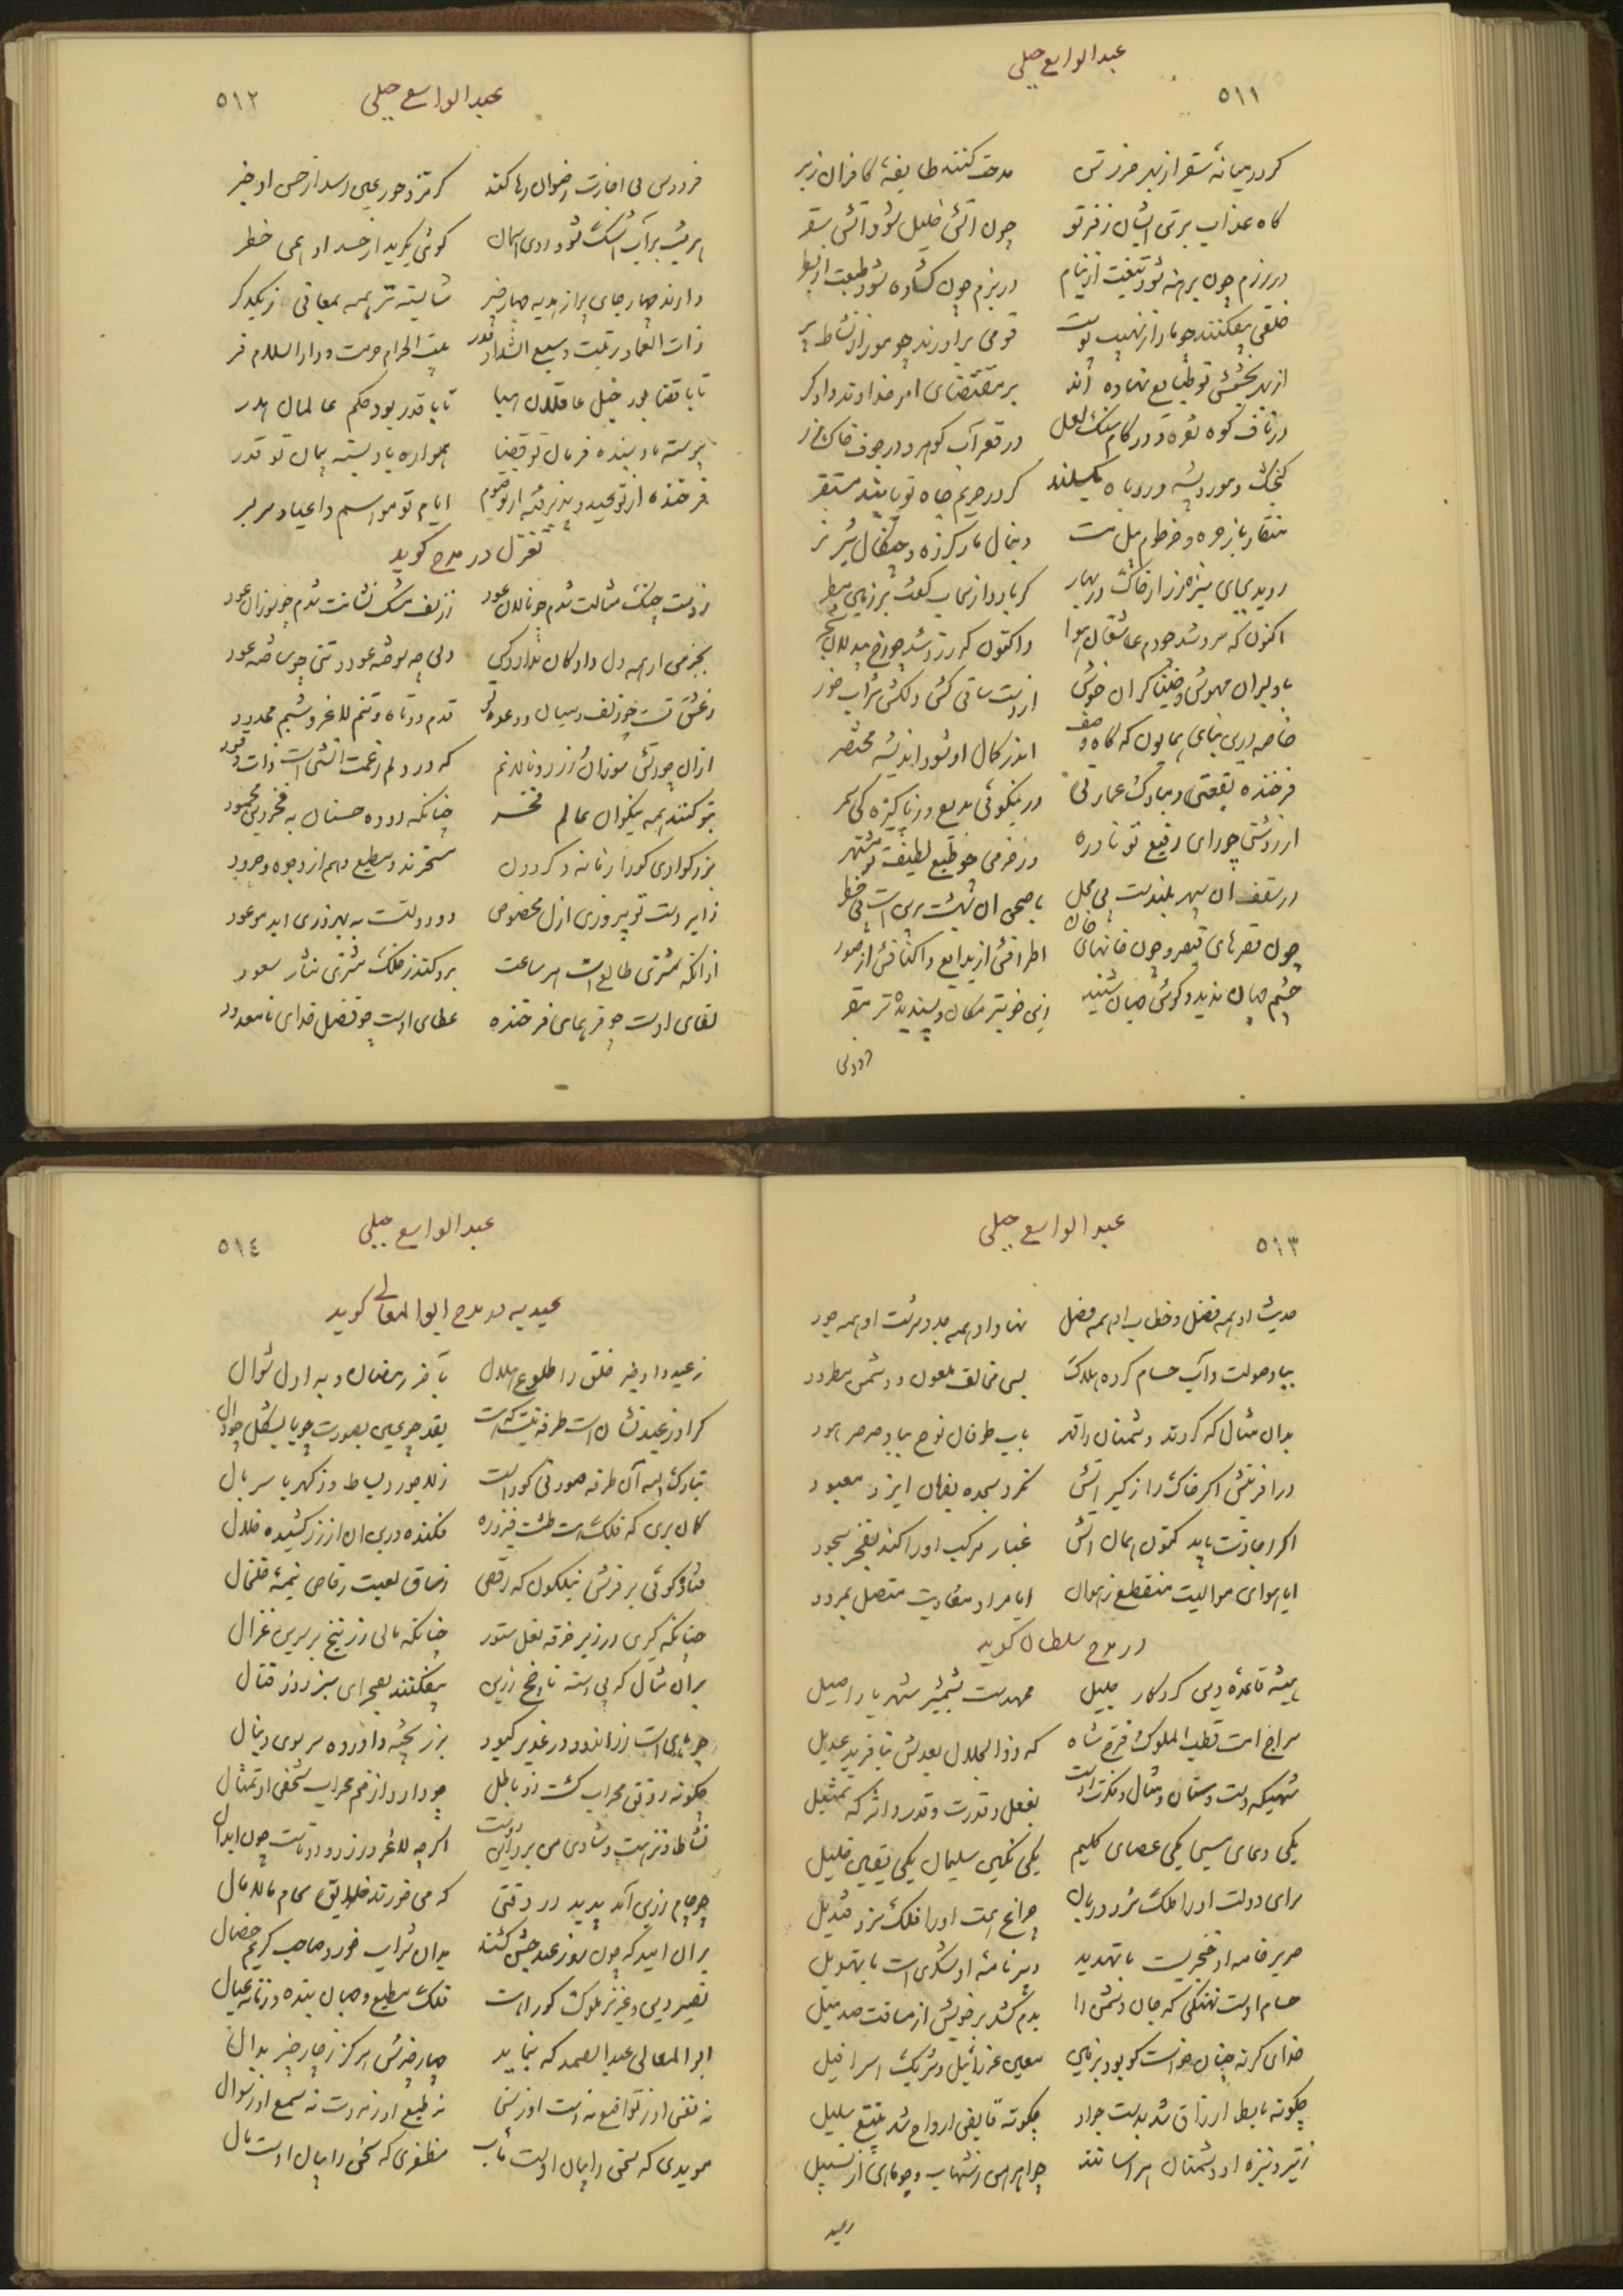 عبدالواسع جبلی
۵۱۱
کر در میانهٔ سقر از بهر حرزتن مدحت کنند طایفهٔ کافران زبر
گاه عذاب برتن ایشان ز فر تو چون آتش خلیل شود آتش سقر
در رزم چون برهنه شود تیغت از نیام در بزم چون کشاده شود طبعت از بطر
خلقی بیفکنند چو مار از نهیب پوست قومی برآورند چو مور از نشاط پر
از بهر بخشش تو طبایع نهاده اند بر مقتضای امر خداوند دادگر
در ناف کوه نقره و در کام سنگ لعل در قعر آب گوهر و در جوف خاک زر
کر در حریم جاه تو یابند مستقر
منقار باز جره و خرطوم پیل مست دنبال مار گرزه و چنگال شیر نر
روید بجای سبزه زر از خاک در بهار گر بارد از سحاب کفت بر زمین مطر
اکنون که سرد شد چو دم عاشقان هوا واکنون که زرد شد چو رخ بیدلان شجر
با دلبران مهوش و خنیاگران خوش از دست ساقی کش و دلکش شراب خور
خاصه درین بنای همایون که گاه وصف اندر کمال او شود اندیشه مختصر
فرخنده بقعتی و مبارک عمارتی در نیکوئی بدیع و ز پاکیزه کی سمر
از روشنی چو رای رفیع تو نادره وز خرمی چو طبع لطیف تو مشتهر
در سقف آن سپهر بلندست بی محل با صحن آن بهشت برین است بی خطر
چون قصرهای قیصر و چون خانهای خان اطرافش از بدایع و اکنافش از صور
چشم جهان ندید و گوش جهان شنید زین خوبتر مکان و پسندیده تر مقر
فردوس
عبدالواسع جبلی
۵۱۲
فردوس بی اجازت رضوان رها کند کر نزد حور عین رسد از حسن او خبر
ابریست پر آب اشک شود روی آسمان گوئی بگرید از حسد او همی خطر
دارند چهار جای پر از هدیه چهار چیز شایسته تر همه بمعانی ز یکدگر
ذات العماد رتبت و سبع الشداد قدر بیت الحرام حرمت و دارالسلام فر
تا با قضا بود حیل عاقلان هبا تا با قدر بود حکم عالمان هدر
پیوسته باد بنده فرمان تو قضا همواره باد بسته پیمان تو قدر
فرخنده از تو عید و پذیرفته از تو صوم ایام تو مواسم و اعیاد سر بسر
تغزل در مدح گوید
ز دست چنگ مثالت شدم چو نالان عود ز زلف مشک نشانت شدم چو سوزان عود
بجز من از همه دل دادگان ندارد کس دلی چو سوخته عود و تنی چو ساخته عود
ز عشق تست چو زلف و میان و وعده تو قدم دوتاه و تنم لاغر و شبم محدود
ازان چو آتش سوزان زرد و نالانم که در دلم ز غمت آتشی است ذات وقود
بتو کنند همه نیکوان عالم فخر چنانکه دوده حسنان به فخر دین محمود
بزرکواری کورا زمانه و گردون مسخرند و مطیع و هم از وجوه وجود
ز ایر دست تو پیروزی ازل مخصوص در دولتت به بهروزی ابد موعود
از آنکه مشتری طالع است هر ساعت برو کند ز فلک مشتری نثار سعود
لقای اوست چو فر همای فرخنده عطای اوست چو فضل خدای نامعدود
عبدالواسع جبلی
۵۱۳
حدیث او همه فضل و خطاب او همه فصل نهاد او همه جد و سرشت او همه جود
بباد صولت و آب حسام کرده هلاک بسی مخالف ملعون و دشمن مطرود
بدان مثال که کردند دشمنان را قهر بآب طوفان نوح بباد صرصر هود
در آفرینش اگر خاک را ز کبر آتش نکرد سجده بفرمان ایزد معبود
اگر اجازت یابد کنون همان آتش غبار مرکب او را کند بفخر سجود
ایا هوای موالیت منقطع ز هوان ایا مراد معادیت متصل بمردود
در مدح سلطان گوید
همیشه قاعدهٔ دین کردگار جلیل ممهدست بشمشیر شهریار اصیل
سراج امت قطب الملوک فرخ شاه که ذوالجلال بعدلش نیافرید عدیل
شهیکه دست و سنان و مثال و فکرت اوست بفعل و قدرت و قدر و اثر که تمثیل
یکی دعای مسیحا یکی عصای کلیم یکی نگین سلیمان یکی یقین خلیل
سرای دولت او را ملک سزد دربان چراغ همت او را فلک سزد قندیل
صریر خامه او خنجریست با تهدید دبیر نامهٔ او لشکری است با تهویل
حسام اوست نهنگی که جان دشمن را بدم کشد بر خویش از مسافت صد میل
خدای کرنه چنان خواست کو بود بزمین معین عزرائیل و شریک اسرافیل
چگونه باسط ارزاق شد بدست جواد چگونه قابض ارواح شد بتیغ سلیل
ز تیر و نیزه او دشمنان هراسانند چو اهرمن ز شهاب و چو مار از تسبیل
ز عید
عبدالواسع جبلی
۵۱٤
عیدیه در مدح ابوالمعالی گوید
ز عید داد خبر خلق را طلوع هلال بآخر رمضان و به اول شوال
کر او ز عید نشان است طرفه نیست که هست بقد چو عین بصورت چو یا بشکل چو دال
تبارک الله آن طرفه صورتی کور است زلاجورد بساط و ز کهربا سربال
گمان بری که فلک هست طشت فیروزه فکنده در بن آن از زر کشیده خلال
فتاد گوئی بر فرش نیلگون که رقص ز ساق لعبت رقاص نیمهٔ خلخال
چنانکه گیری در زیر خرقه نعل ستور چنانکه مالی زرنیخ بر سرین غزال
بران مثال که بی دسته ناچخ زرین بیفکنند بصحرای سبز روز قتال
چو ماهی است زراندود در غدیر کبود بزر پخته و آورده سر بسوی دنبال
چگونه رونق محراب گشت زو باطل چو دارد از خم محراب منحنی تمثال
نشاط و نزهت و شادی من بدیدن اوست اگرچه لاغر و زرد و دوتاست چون ابدال
چو جام زرین آمد پدید در وقتی که می خورند خلایق بجام مالامال
بران امید که چون روز عید جشن کنند بدان شراب خورد صاحب کریم خصال
نصیر دین و عزیز ملوک کوراهست فلک مطیع و جهان بنده و زمانه عیال
ابوالمعالی عبدالصمد که نماید چهار چیزش هرگز ز چار چیز بدال
نه نفس او ز تواضع نه دست او ز سخا نه طبع او ز مروت نه سمع او ز سوال
مویدی که سخی را بمال اوست مآب مظفری که سخن را بمال اوست مال